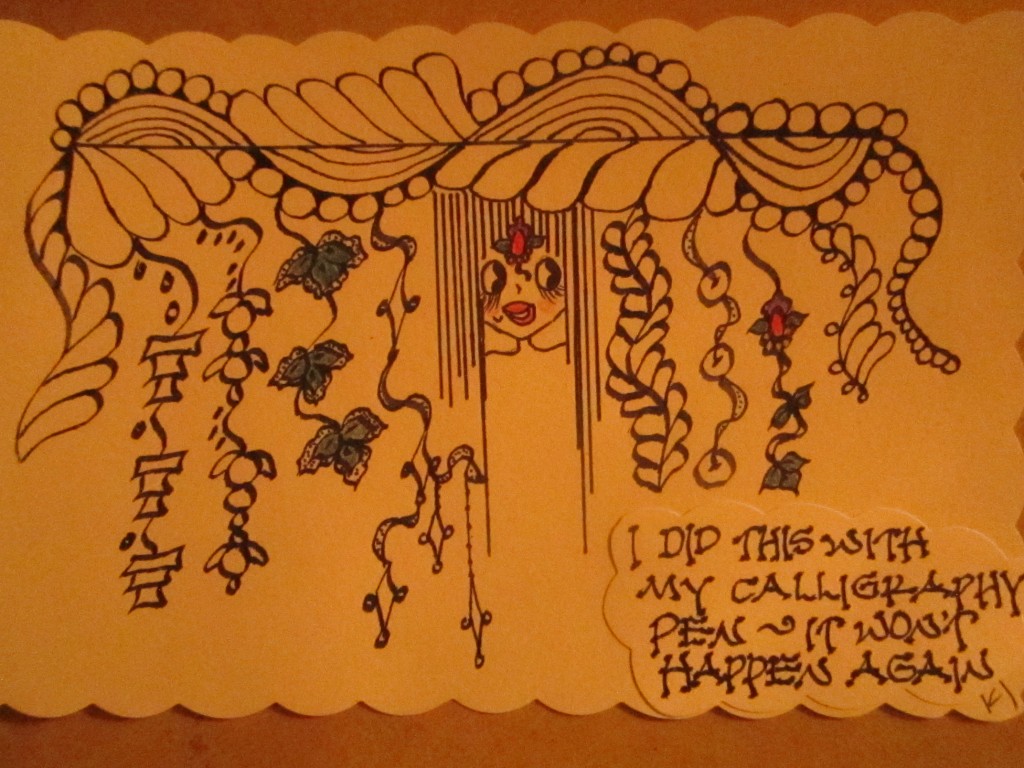 I DID THIS WITH
MY CALLIGRAPHY
PEN ~ IT WON'T
HAPPEN AGAIN